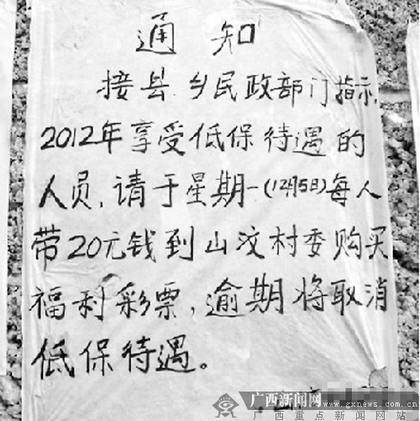 通知
接县乡民政部门指示,
2012年享受低保待遇的
人员,请于星期一(12月5日)每人
带20元钱到山汶村委购买
福利彩票,逾期将取消
低保待遇。
广西新闻网
www.gxnews.com.cn
广西重点新闻网站